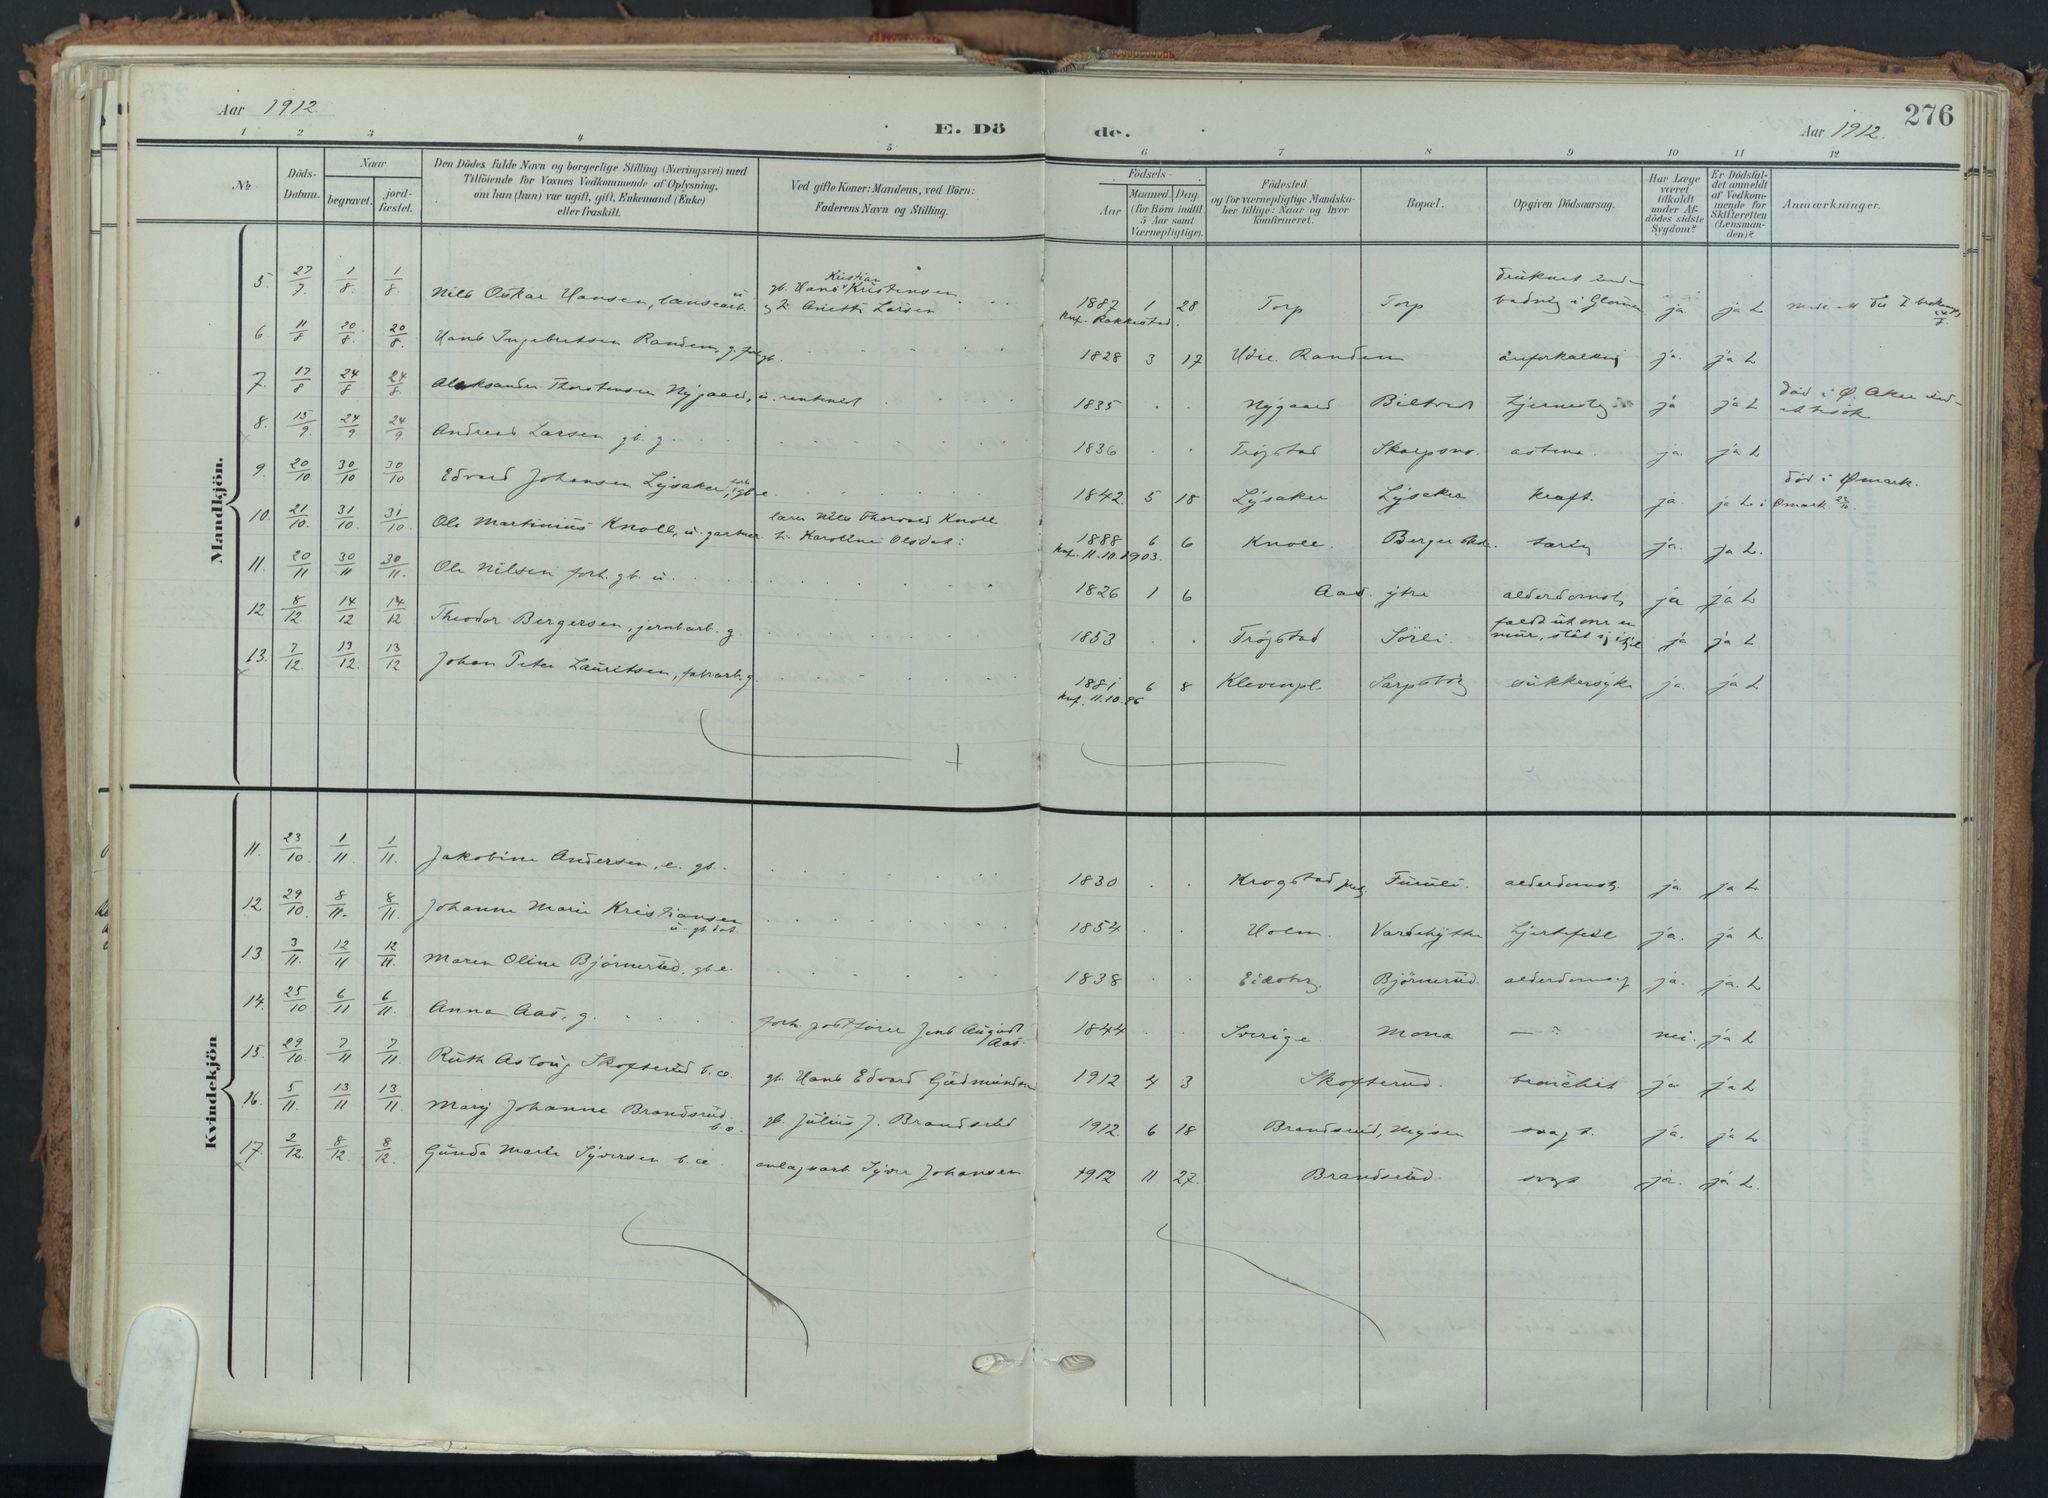 Aar 1912.
E. Dö
de.
Aar 1912.
276
1 2 3 4 5 6 7 8 9 10 11 12
No
Döds-Datum.
Naar
begravet.
jord-fæstet.
Den Dödes fulde Navn og borgerlige Stilling (Næringsvei) med
Tilföiende for Voxnes Vedkommende af Oplysning,
om han (hun) var ugift, gift, Enkemand (Enke)
eller fraskilt.
Ved gifte Koner: Mandens, ved Börn:
Faderens Navn og Stilling.
Födsels-
Aar
Maaned Dag
(for Börn indtil
5 Aar samt
Værnepligtige).
Födested
og for værnepligtige Mandska-
ber tillige: Naar og hvor
konfirmeret.
Bopæl.
Opgiven Dödsaarsag.
Har Læge
været
tilkaldt
under Af-
dödes sidste
Sygdom?
Er Dödsfal-
det anmeldt
af Vedkom-
mende for
Skifteretten
(Lensman-
den)?
Anmærkninger.
Mandkjön.
5. 27/7 1/8 1/8 Nils Oskar Hansen, lænsearb. u gb. Hans Kristian Kristensen 1887 1 28 Torp Torp ja. ja L
Konf. Rakkestad.
6 11/8 20/8 20/8 Hans Ingebretsen Randem, g. forh. gb. 1828 3 17 Randem aareforkalkning ja. ja L
7. 17/8 24/8 24/8 Aleksander Thorstensen Nygaard, u. rentenist 1835 Nygaard ja ja L død i Ø. Aker
8. 15/9 24/9 24/9 Andreas Larsen gb. g. 1836 Trøgstad Skarpsno. astma. ja. ja L
9 20/10 30/10 30/10 Edvard Johansen Lysaker, forh. gb. e. 1842. 5 18 Lysaker Lysaker kræft. ja. ja L i Ømark død i Ømark.
10. 21/10. 31/10. 31/10 Ole Martinius Knoll, u. gartner lærer Nils Thorvald Knoll 1888 6 6 Knoll. ja. ja L.
h. Karoline Olsdat: Konf. 11.10.1903.
11. 20/11 30/11 30/11. Ole Nilsen forh. gb. u. 1826 1 6 Aas ytre alderdomssv. ja ja L
12 8/12 14/12 14/12 Theodor Bergersen, jernbarb. g. 1853 Trøgstad Sörli ja ja L
13. 7/12 13/12. 13/12 Johan Peter Lauritsen, fabrarb. g. 1881 6 8 Klevenpl. Sarpsborg sukkersyke ja. ja L
Konf. 11.10.96
Kvindekjön
11. 23/10 1/11 1/11. Jakobine Andersen, e. gb. 1830 Krogstad Furuli. alderdomssv. ja. ja L
12 29/10. 8/11. 8/11. Johanne Marie Kristiansen 1854 Holm. Vardehytta hjertefeil ja. ja L
u. gb. dat.
13 3/11. 12/11 12/11. Maren Oline Bjørnerud, gb. e. 1838 Eidsberg Bjørnerud. alderdomssv ja. ja. L
14. 25/10 6/11 6/11. Anna Aas, g. forh. postfører Jens August Aas. 1844 Sverige Mona — nei. ja L
15. 29/10. 7/11 7/11 Ruth Aslaug Skofterud b. æ. gb. Hans Edvard Gudmundsen 1912 4 3 Skofterud. bronchit ja. ja L
16. 5/11. 13/11 13/11 Mary Johanne Brandsrud b. æ. gb. Julius J. Brandsrud 1912. 6 18 Brandsrud, Mysen svagt. ja. ja L
17. 2/12. 8/12 8/12. Gunda Marie Syversen b. æ anlægsarb Syver Johansen 1912 11 27. Brandsrud. svagt ja. ja L.